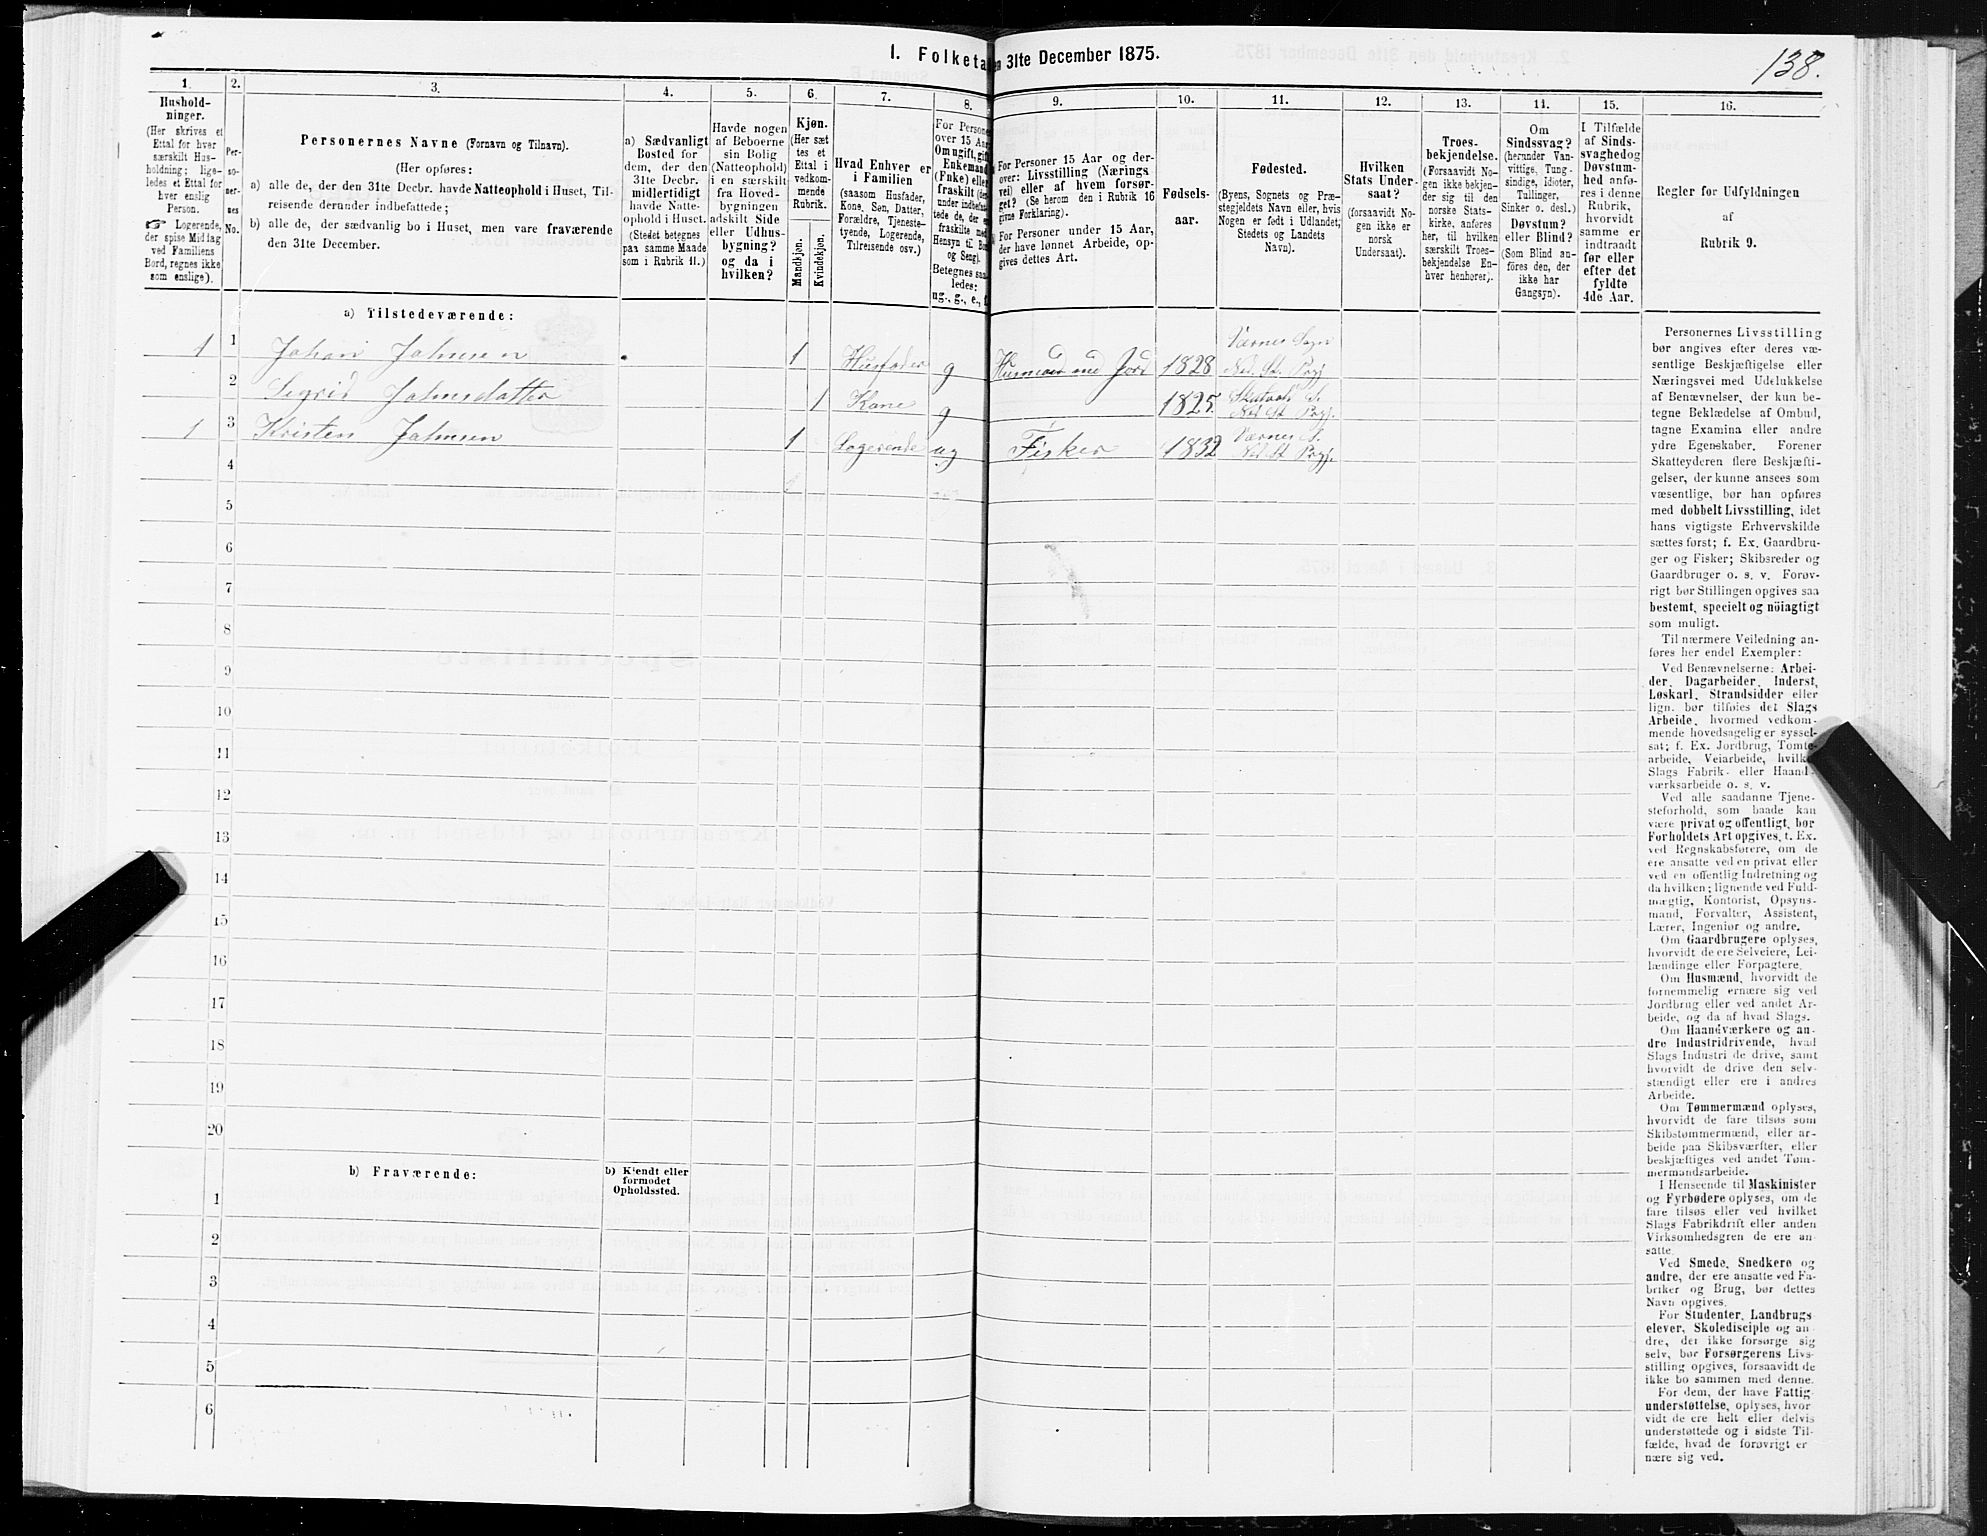 138.
I. Folketa
en 31te December 1875.
1.
2.
3.
4.
5.
6.
7.
8.
9.
10.
11.
12.
13.
14.
15.
16.
Hushold-
ninger.
(Her skrives et
Ettal for hver
særskilt Hus-
holdning; lige-
ledes et Ettal for
hver enslig
Person.
☞ Logerende,
der spise Middag
ved Familiens
Bord, regnes ikke
som enslige).
Per-
so-
ner-
nes
No.
Personernes Navne (Fornavn og Tilnavn).
(Her opføres:
a) alle de, der den 31te Decbr. havde Natteophold i Huset, Til-
reisende derunder indbefattede;
b) alle de, der sædvanlig bo i Huset, men vare fraværende
den 31te December.
a) Sædvanligt
Bosted for
dem, der den
31te Decbr.
midlertidigt
havde Natte-
ophold i Huset.
(Stedet betegnes
paa samme Maade
som i Rubrik 11.)
Havde nogen
af Beboerne
sin Bolig
(Natteophold)
i en særskilt
fra Hoved-
bygningen
adskilt Side
eller Udhus-
bygning?
og da i
hvilken?
Kjøn.
(Her sæt
tes et
Ettal i
vedkom-
mende
Rubrik.
Mandkjøn.
Kvindekjøn.
Hvad Enhver er
i Familien
(saasom Husfader,
Kone, Søn, Datter,
Forældre, Tjeneste-
tyende, Logerende,
Tilreisende
osv.)
For Persone
over 15 Aar
Om ugift, gift
Enkemand
(Enke) eller
fraskilt (der-
under indbefat-
tede de, der e
fraskilte med
Hensyn til Bor
og Seng).
Betegnes saa
ledes:
ug., g., e., f.
For Personer 15 Aar og der-
over: Livsstilling (Nærings
vei) eller af hvem forsør-
get? (Se herom den i Rubrik 16
givne Forklaring).
For Personer under 15 Aar,
der have lønnet Arbeide, op-
gives dettes Art.
Fødsels-
aar.
Fødested.
(Byens, Sognets og Præ-
stegjeldets Navn eller, hvis
Nogen er født i Udlandet,
Stedets og Landets
Navn).
Hvilken
Stats Under-
saat?
(forsaavidt No-
gen ikke er
norsk
Undersaat).
Troes-
bekjendelse.
(Forsaavidt No-
gen ikke bekjen-
der sig til den
norske Stats-
kirke, anføres
her, til hvilken
særskilt Troes-
bekjendelse En-
hver henhører.
Om
Sindssvag?
(herunder Van-
vittige, Tung-
sindige, Idioter,
Tullinger,
Sinker o. desl.)
Døvstum?
eller Blind?
(Som Blind an-
føres den, der
ikke har
Gangsyn).
I Tilfælde
af Sinds-
svaghed og
Døvstum-
hed anfø-
res i denne
Rubrik,
hvorvidt
samme er
indtraadt
før eller
efter det
fyldte
4de Aar.
Regler for Udfyldningen
af
Rubrik 9.
a) Tilstedeværende:
1 1 Johan Johnsen 1 Husfader g Husmand med Jord 1828 Værnes Sogn
Ned. St. Prgj
2 Sigrid Johnsdatter 1 Kone g 1825. S.
Ned St Prgj.
1 3 Kristen Johnsen 1 Logerende ug Fisker 1832 Værnes S.
Ned St Prgj.
4
5
6
7
8
9
10
11
12
13
14
15
16
17
18
19
20
b) Fraværende:
b) Kjendt eller
formodet
Opholdssted.
1
2
3
4
5
6
Personernes Livsstilling
bør angives efter deres væ-
sentlige Beskjæftigelse eller
Næringsvei med Udelukkelse
af Benævnelser, der kun be-
tegne Beklædelse af Ombud,
tagne Examina eller andre
ydre Egenskaber. Forener
Skatteyderen flere Beskjæfti-
gelser, der kunne ansees som
væsentlige, bør han opføres
med dobbelt Livsstilling, idet
hans vigtigste Erhvervskilde
sættes først; f. Ex. Gaardbru-
ger og Fisker; Skibsreder og
Gaardbruger o. s. v. Forøv-
rigt bør Stillingen opgives saa
bestemt, specielt og nöiagtigt
som muligt.
Til nærmere Veiledning an-
føres her endel Exempler:
Ved Benævnelserne: Arbei-
der, Dagarbeider, Inderst,
Løskarl, Strandsidder eller
lign. bør tilføies det Slags
Arbeide, hvormed vedkom-
mende hovedsagelig er syssel-
sat; f. Ex. Jordbrug, Tomte-
arbeide, Veiarbeide, hvilke
Slags Fabrik- eller Haand-
værksarbeide o. s. v.
Ved alle saadanne Tjene-
steforhold, som baade kan
være privat og offentligt, bør
Forholdets Art opgives, f. Ex.
ved Regnskabsførere, om de
ere ansatte ved en privat eller
ved en offentlig Indretning og
da hvilken; lignende ved Fuld-
mægtig, Kontorist, Opsyns-
mand, Forvalter, Assistent,
Lærer, Ingeniør og andre.
Om Gaardbrugere oplyses,
hvorvidt de ere Selveiere, Lei-
lændinge eller Forpagtere.
Om Husmænd, hvorvidt de
fornemmelig ernære sig ved
Jordbrug eller ved andet Ar-
beide, og da af hvad Slags.
Om Haandværkere og an-
dre Industridrivende, hvad
Slags Industri de drive, samt
hvorvidt de drive den selv-
stændigt eller ere i andres
Arbeide.
Om Tømmermænd oplyses,
hvorvidt de fare tilsøs som
Skibstømmermænd, eller ar-
beide paa Skibsværfter, eller
beskjæftiges ved andet Tøm-
mermandsarbeide.
I Henseende til Maskinister
og Fyrbødere oplyses, om de
fare tilsøs eller ved hvilket
Slags Fabrikdrift eller anden
Virksomhedsgren de ere an-
satte.
Ved Smede, Snedkere og
andre, der ere ansatte ved Fa-
briker og Brug, bør dettes
Navn opgives.
For Studenter, Landbrugs
elever, Skoledisciple og an
dre, der ikke forsørge sig
selv, bør Forsørgerens Livs-
stilling opgives, forsaavidt de
ikke bo sammen med denne.
For dem, der have Fattig
understøttelse, oplyses, hvor
vidt de ere helt eller delvis
understøttede og i sidste Til-
fælde, hvad de forøvrigt er
nære sig ved.